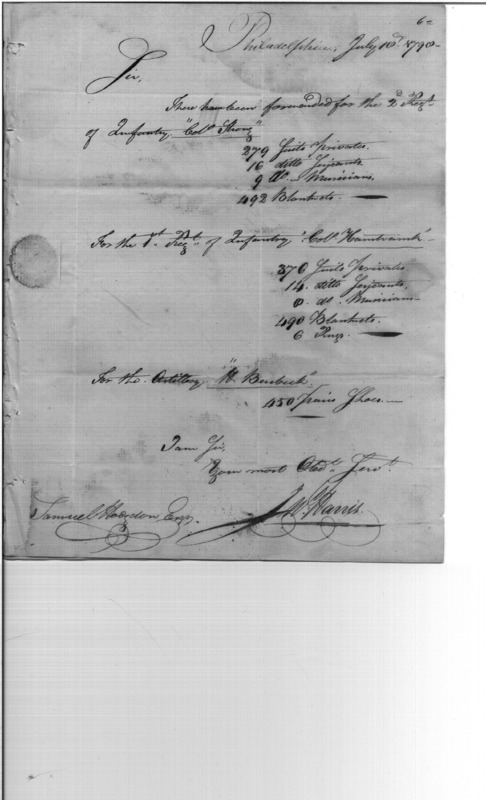 6=
Philadelphia, July 10th 1798-
Sir,
There have been forwarded for the 2d Regt.
of Infantry, "Coll. Strong"
279 Suits privates.
16 ditto Serjeants
9 do. Musicians.
492 Blankets.
For the 1st Regt. of Infantry "Coll. Hamtramck"
376 Suits privates
14. ditto Serjeants.
8 do. Musicians
490 Blankets.
6 Rugs.
For the Artillery, "M. Burbeck".
450 pairs Shoes.
I am Sir,
Your most Obedt. Servt.
J W Harris
Samuel Hodgdon Esqr.